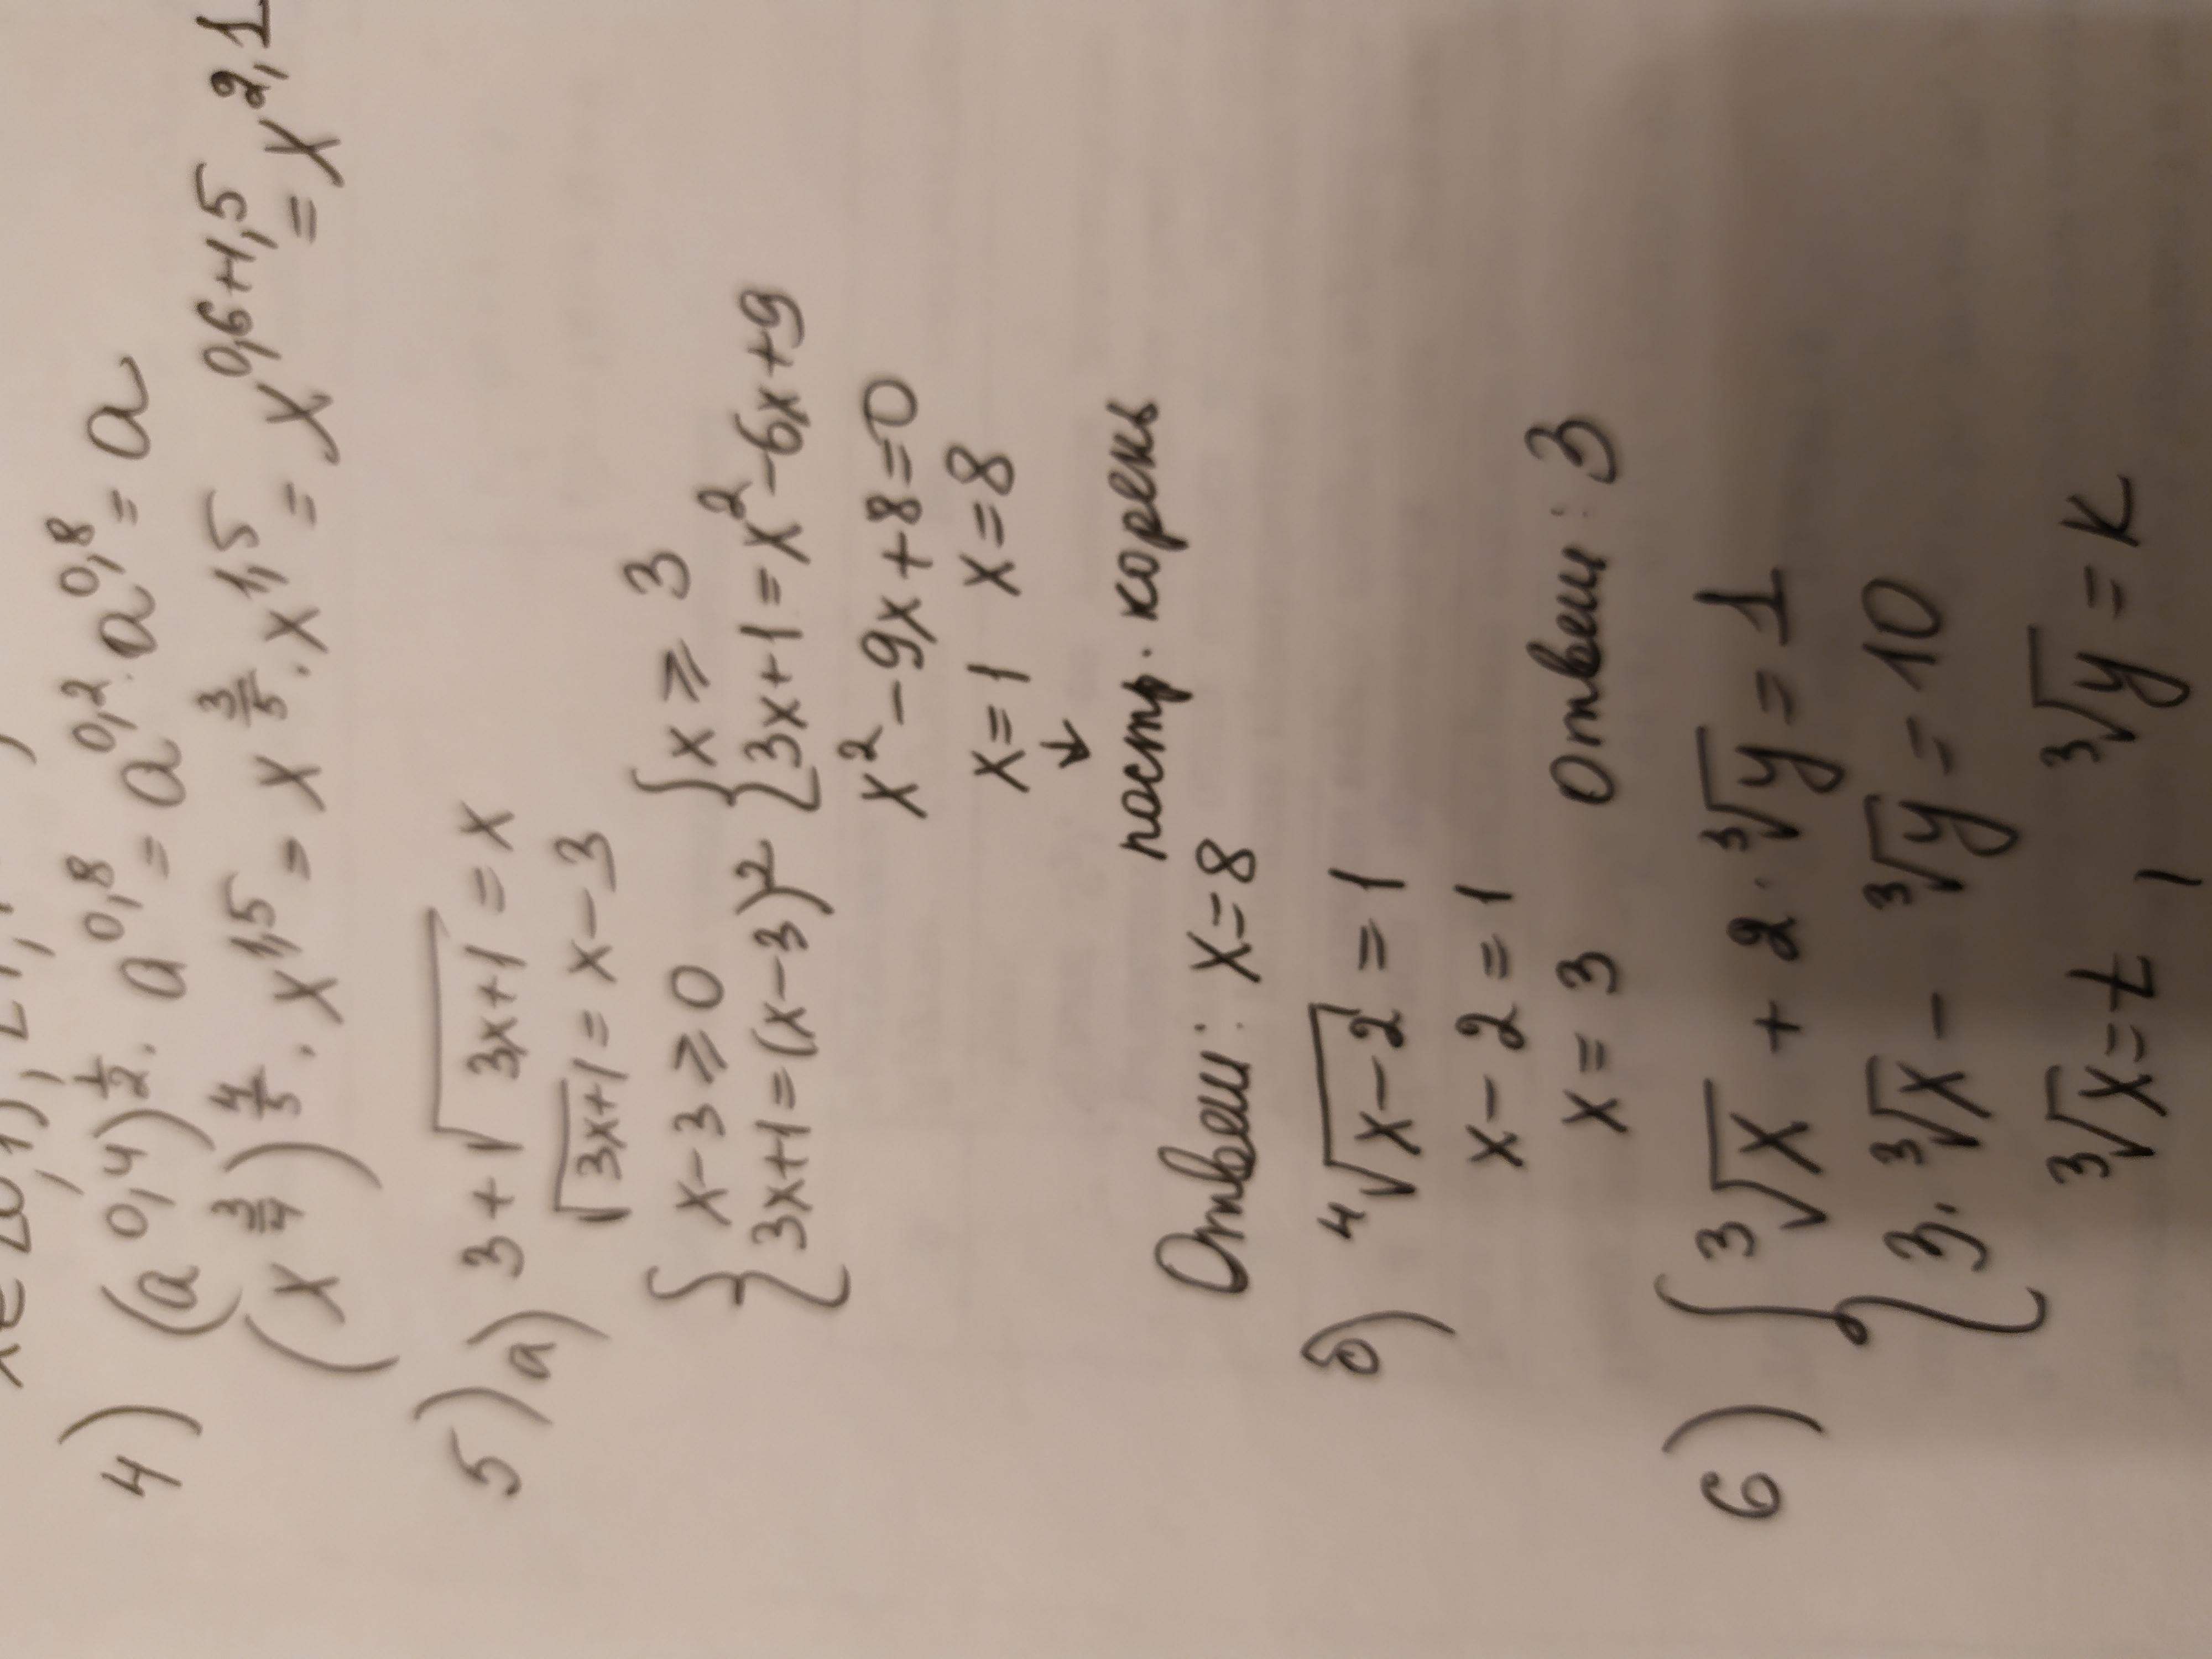 4) (a^0,4)^1/2 · a^0,8 = a^0,2 · a^0,8 = a
(x^3/4)^4/5 · x^1,5 = x^3/5 · x^1,5 = x^0,6+1,5 = x^2,1
5) а) 3 + √(3x+1) = x
√(3x+1) = x − 3
{ x − 3 ⩾ 0 { x ⩾ 3
{ 3x+1 = (x−3)² { 3x+1 = x² − 6x + 9
x² − 9x + 8 = 0
x = 1 x = 8
↓
постр. корень
Ответ: x = 8
б) ⁴√(x−2) = 1
x − 2 = 1
x = 3 Ответ: 3
6) { ³√x + 2 · ³√y = 1
{ 3 · ³√x − ³√y = 10
³√x = t , ³√y = k